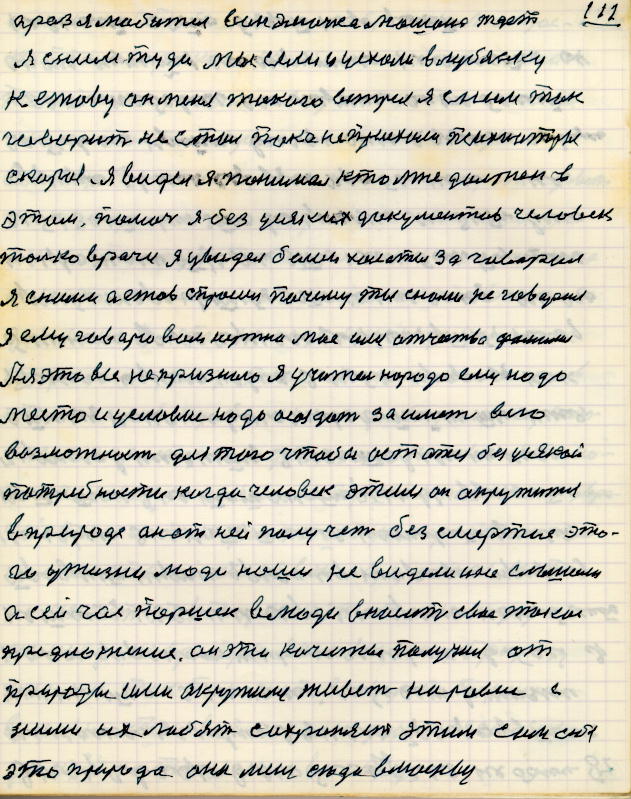 111
я с ним туда мы сели и уехали в лубянку
к ежову он меня такого встрел я с ним так
говорит не стал пока не приехали психиатры
скоро я видел я понимал кто мне должен в
этом. помоч я без усяких документов человек
только врачи я увидел белои халаты заговорил
я с ними а ежов спросил почему ты с нами не говорил
я ему говарю вам нужна мое имя отчества фамили
А я это все не признаю я учител народа ему надо
место и условие надо создат заимет всю
возможност для того чтобы остатся без усякой
потребности когда человек этим он окружится
в природе он от ней получет без смертие это-
го у жизни люди наши не видели не слышели
а сей час Паршек в люди вносит свае такое
предложение. он эти качества получил от
природы ими окружил живет наровне с
ними их любят сохроняет этим сам себя
это природа она меня сюда в москву